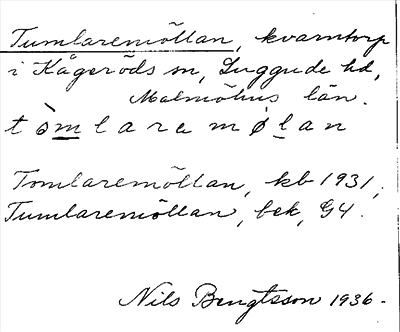 Tumlaremöllan, kvarntorp
i Kågeröds sn, Luggude hd,
Malmöhus län.
tòmlaremølan
Tomlaremöllan, kb 1931,
Tumlaremöllan, bek, G4.
Nils Bengtsson 1936.